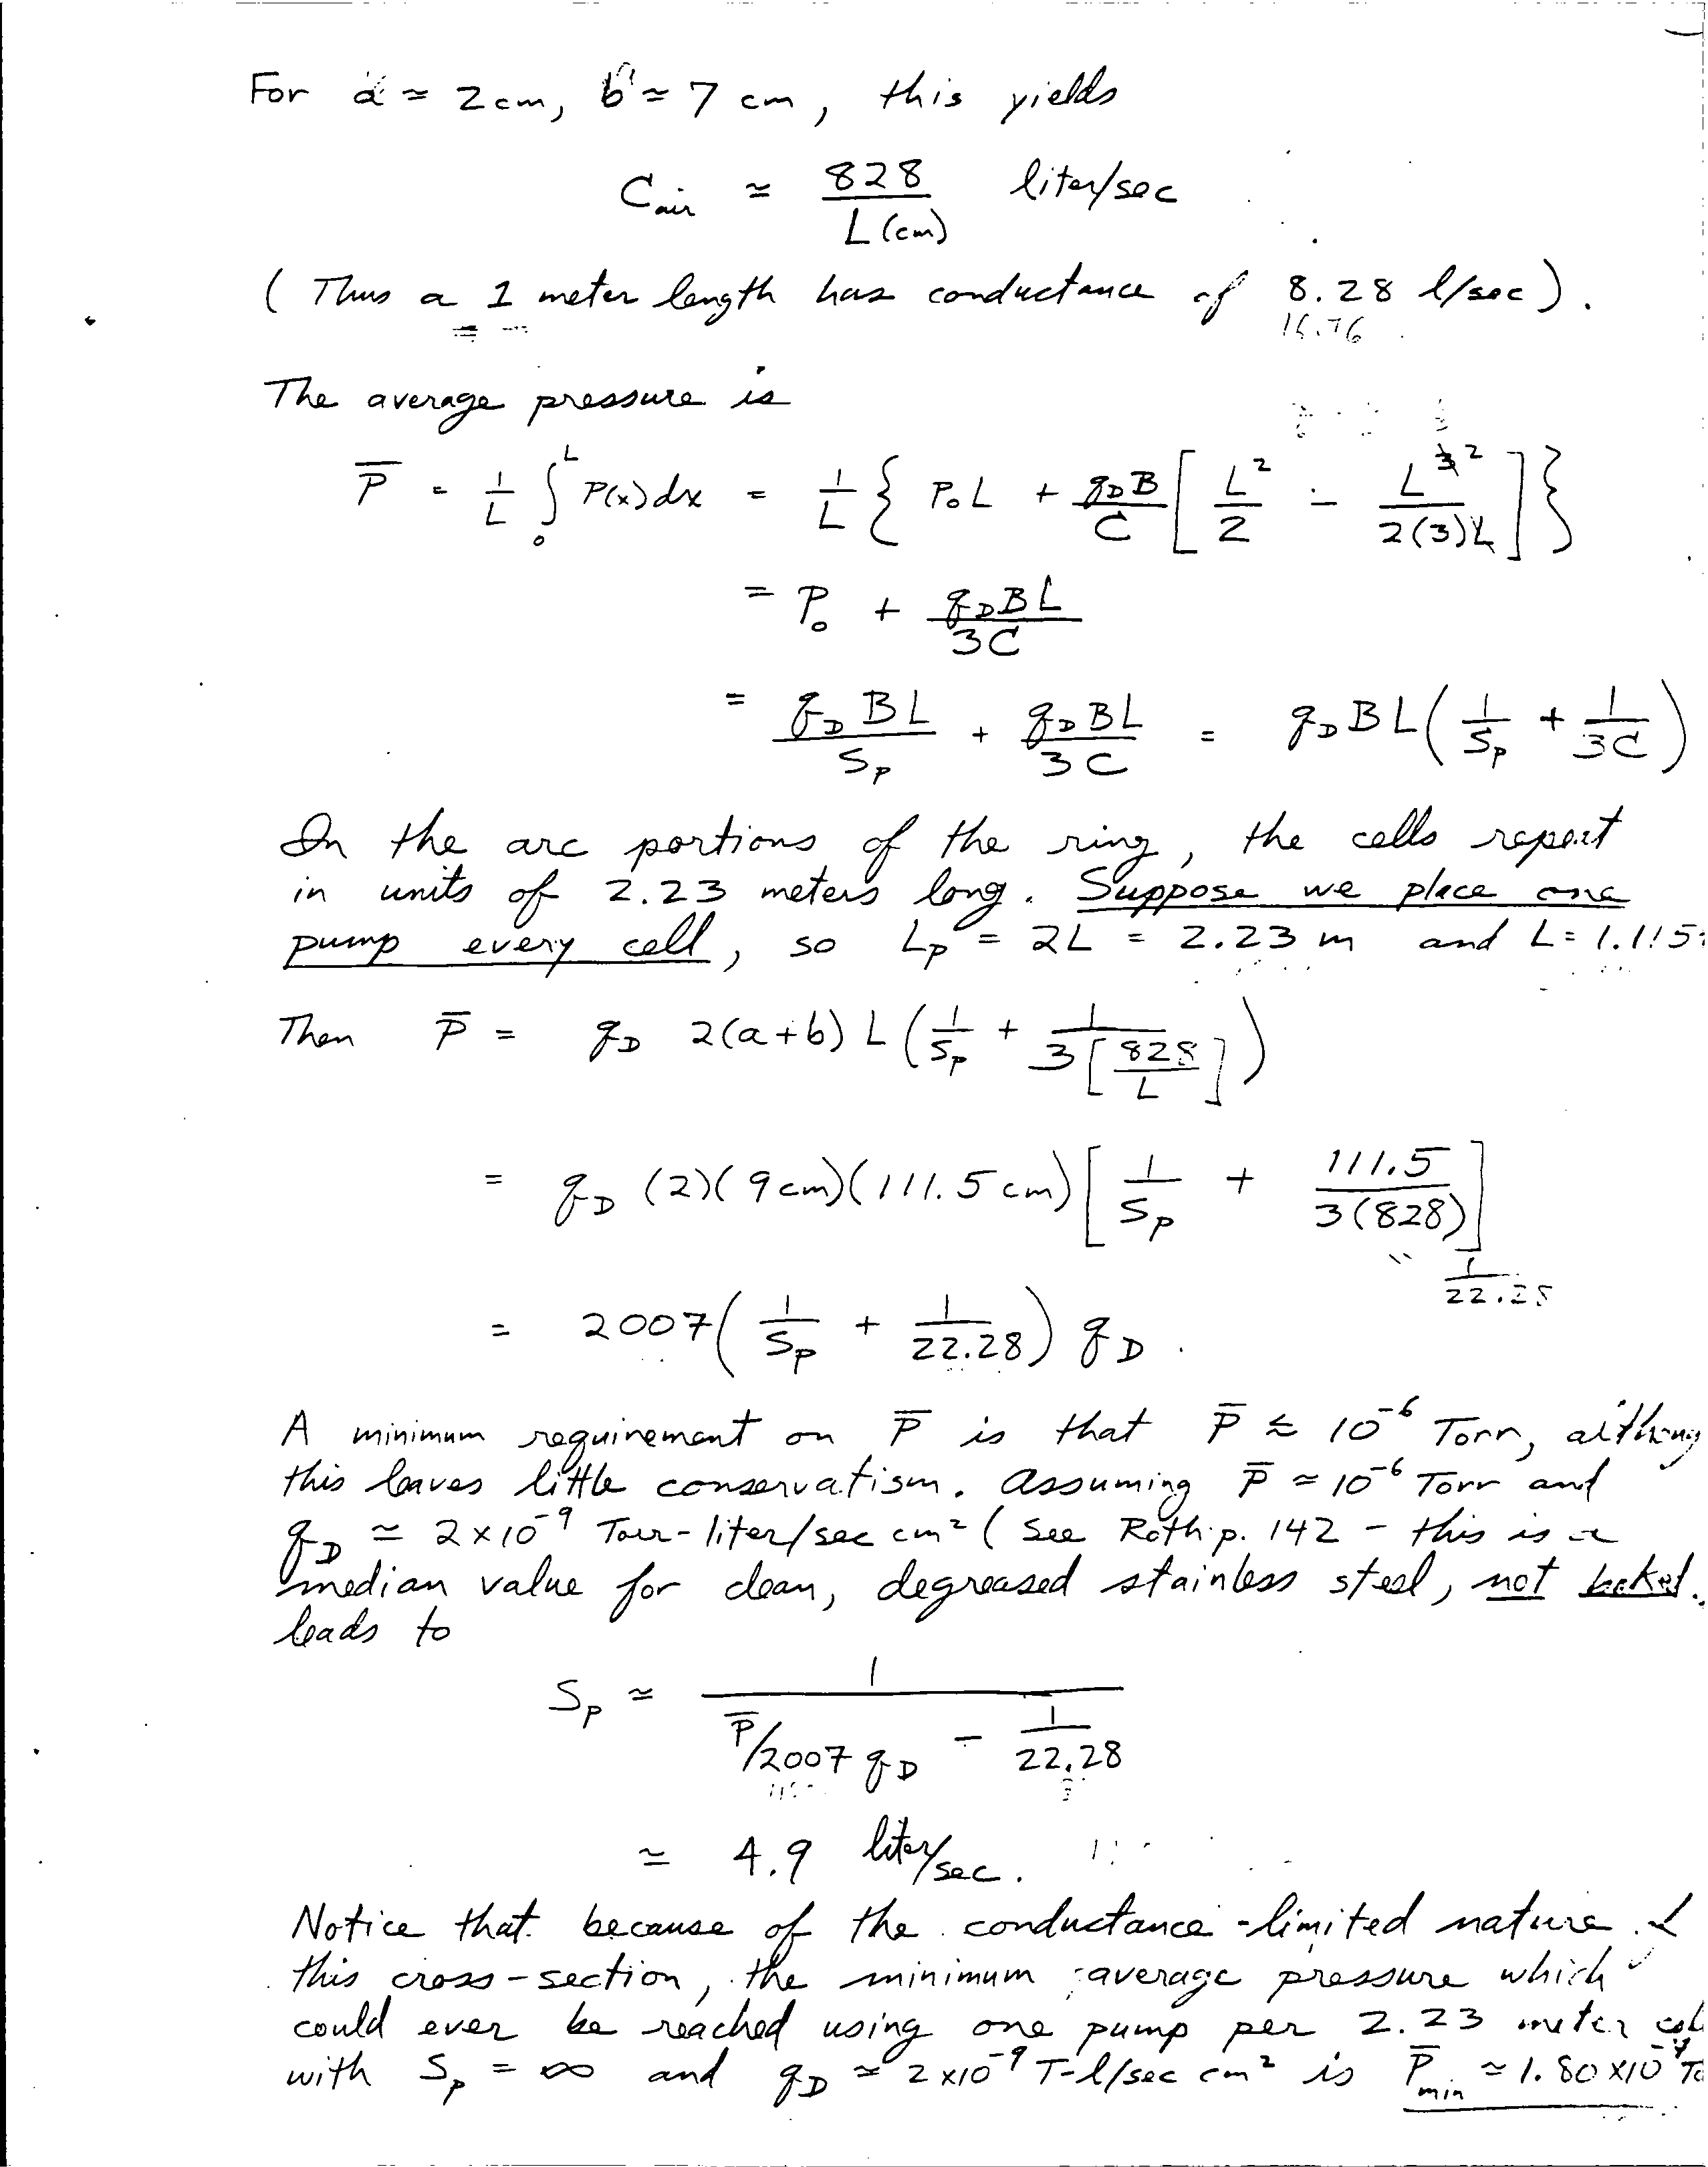 For a ≈ 2 cm, b ≈ 7 cm, this yields
C_air ≃ 828 / L (cm) liter/sec
( Thus a 1 meter length has conductance of 8.28 l/sec).
16.76
The average pressure is
P̄ = 1/L ∫₀^L P(x)dx = 1/L { P₀L + q_D B/C [ L²/2 - L²/2(3)L ] }
= P₀ + q_D BL/3C
= q_D BL/S_p + q_D BL/3C = q_D BL ( 1/S_p + 1/3C )
In the arc portions of the ring, the cells repeat
in units of 2.23 meters long. Suppose we place one
pump every cell, so L_p = 2L = 2.23 m and L = 1.115
Then P̄ = q_D 2(a+b) L ( 1/S_p + 1/3[828/L] )
= q_D (2)(9cm)(111.5 cm) [ 1/S_p + 111.5/3(828) ]
1/22.28
= 2007 ( 1/S_p + 1/22.28 ) q_D .
A minimum requirement on P̄ is that P̄ ≲ 10⁻⁶ Torr, although
this leaves little conservatism. Assuming P̄ ≈ 10⁻⁶ Torr and
q_D ≃ 2×10⁻⁹ Torr-liter/sec cm² ( See Roth p. 142 - this is a
median value for clean, degreased stainless steel, not baked.
leads to
S_p ≃ 1 / ( P̄/2007 q_D - 1/22.28 )
≃ 4.9 liter/sec.
Notice that because of the conductance-limited nature of
this cross-section, the minimum average pressure which
could ever be reached using one pump per 2.23 meter cell
with S_p = ∞ and q_D ≃ 2×10⁻⁹ T-l/sec cm² is P̄_min ≃ 1.80 ×10⁻⁷ To